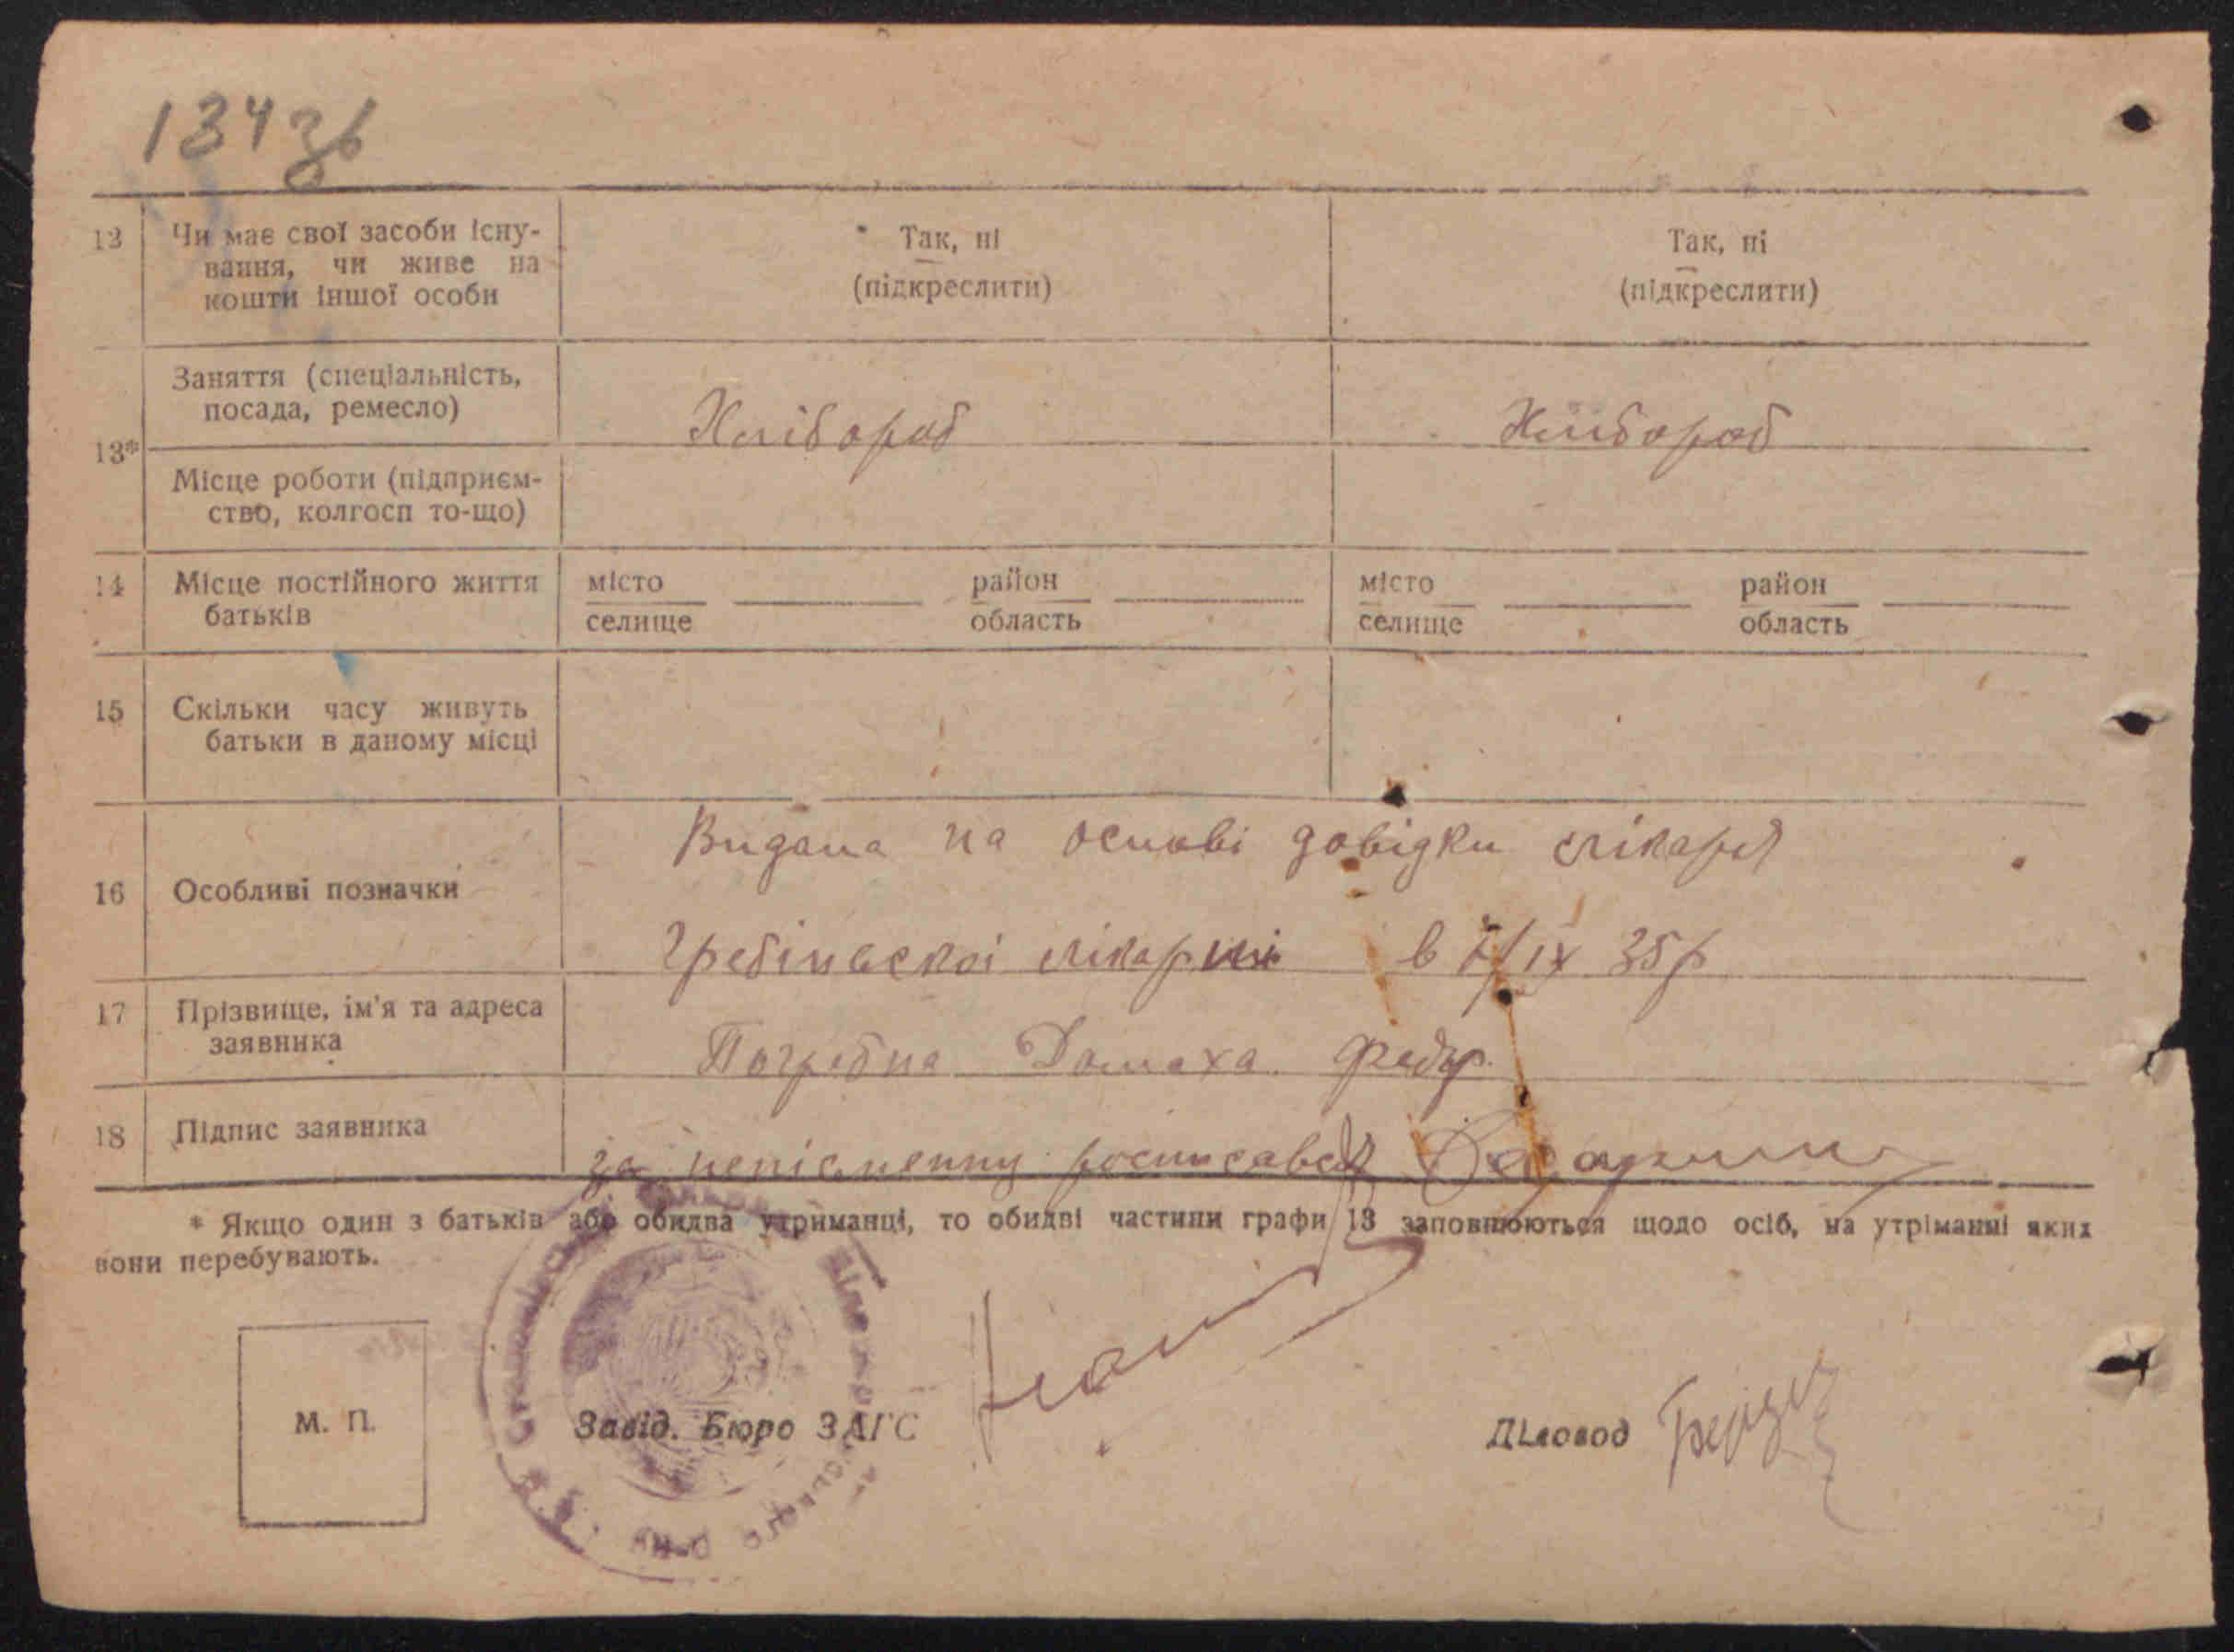 134зв
12 Чи має свої засоби існу- Так, ні Так, ні
вання, чи живе на (підкреслити) (підкреслити)
кошти іншої особи
Заняття (спеціальність,
посада, ремесло) Хлібороб Хлібороб
13*
Місце роботи (підприєм-
ство, колгосп то-що)
14 Місце постійного життя місто район місто район
батьків селище область селище область
15 Скільки часу живуть
батьки в даному місці
Видана на основі довідки лікаря
16 Особливі позначки
Гребінвскоі лікарні в /IX 35р
17 Прізвище, ім'я та адреса
заявника Погребна Домаха Федор.
18 Підпис заявника
за непісменну росписавсь
* Якщо один з батьків або обидва утриманці, то обидві частини графи 13 заповнюються щодо осіб, на утріманні яких
вони перебувають.
М. П.
Завід. Бюро ЗАГС Діловод